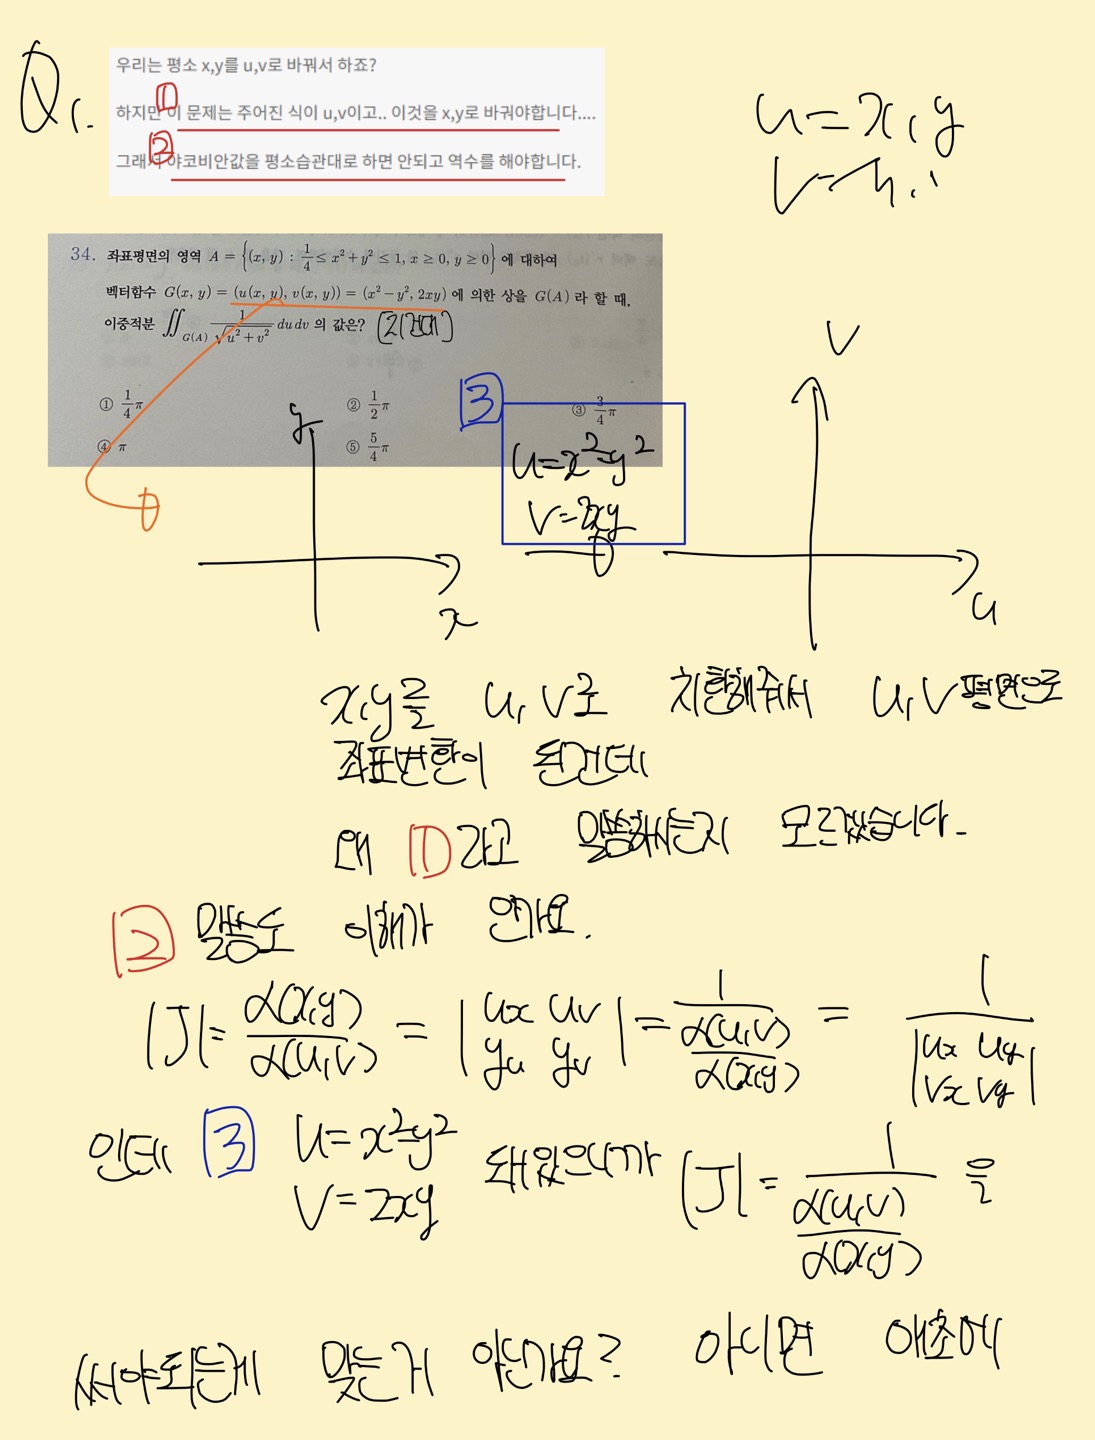 Q1.
우리는 평소 x,y를 u,v로 바꿔서 하죠?
하지만 이 문제는 주어진 식이 u,v이고.. 이것을 x,y로 바궈야합니다....
1
그래서 야코비안값을 평소습관대로 하면 안되고 역수를 해야합니다.
2
u=x,y
34. 좌표평면의 영역 A = {(x, y) : 1/4 ≤ x²+y² ≤ 1, x ≥ 0, y ≥ 0} 에 대하여
벡터함수 G(x, y) = (u(x, y), v(x, y)) = (x²−y², 2xy) 에 의한 상을 G(A) 라 할 때,
이중적분 ∬_G(A) 1/√(u²+v²) du dv 의 값은?
① 1/4 π ② 1/2 π ③ 3/4 π
④ π ⑤ 5/4 π
3
u=x²-y²
v=2xy
y
x
v
u
x,y를 u,v로 치환해줘서 u,v평면으로
좌표변환이 된건데
왜 1라고 말씀하시는지 모르겠습니다.
2 말씀도 이해가 안가요.
|J|= ∂(x,y)/∂(u,v) = |ux uv yu yv| = 1/(∂(u,v)/∂(x,y)) = 1/|ux uy vx vy|
인데 3 u=x²-y² v=2xy 돼있으니까 |J|= 1/(∂(u,v)/∂(x,y)) 을
써야되는게 맞는거 아닌가요? 아니면 애초에